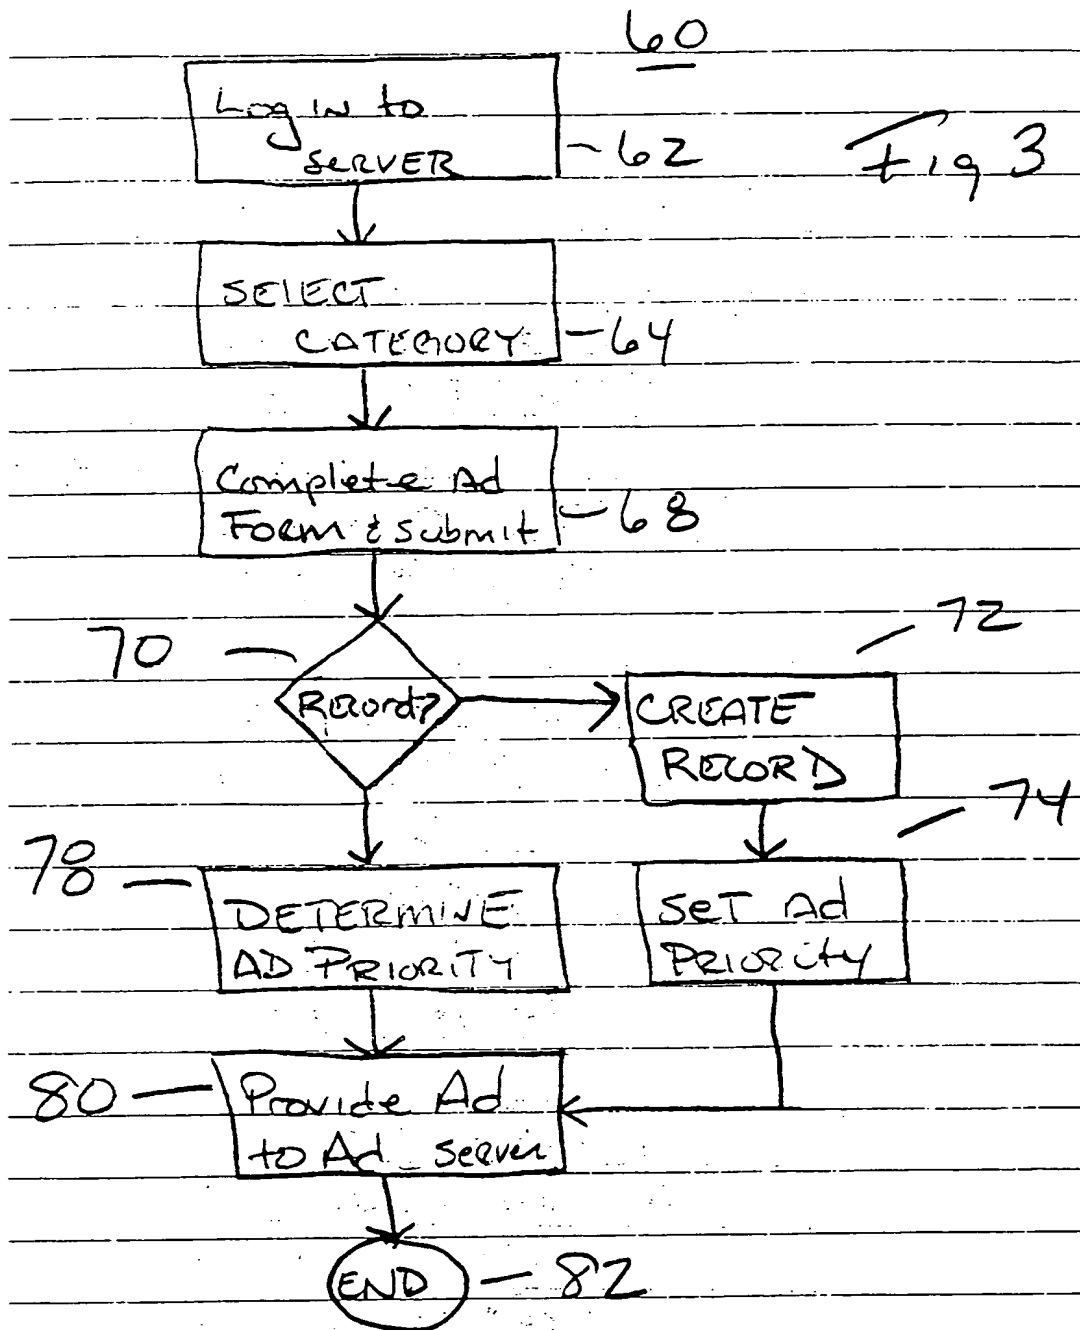 60
Log in to
SERVER
62
Fig 3
SELECT
CATEGORY
64
Complete Ad
Form & Submit
68
70
Record?
72
CREATE
RECORD
74
78
DETERMINE
AD PRIORITY
SET Ad
PRIORITY
80
Provide Ad
to Ad Server
END
82